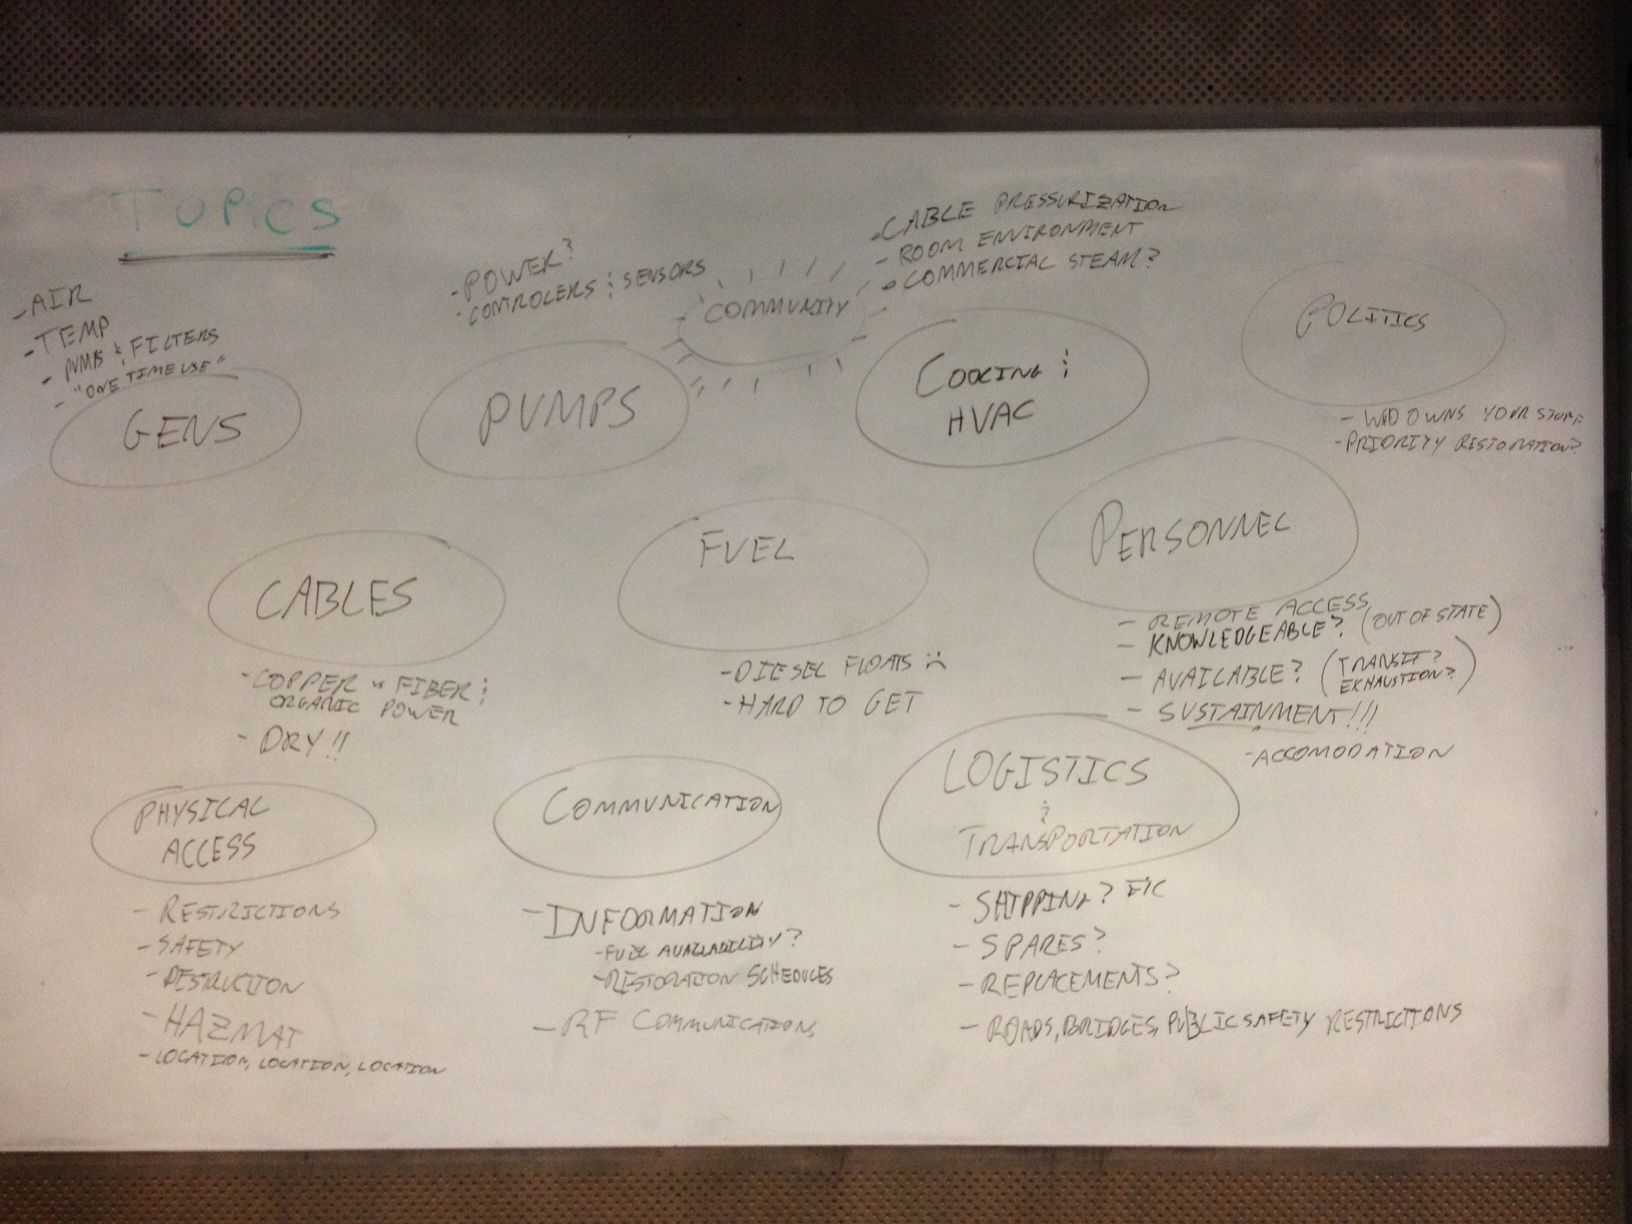 TOPICS
- AIR
- TEMP
- PUMPS & FILTERS
- "ONE TIME USE"
GENS
- POWER?
- CONTROLERS & SENSORS
PUMPS
COMMUNITY
- CABLE PRESSURIZATION
- ROOM ENVIRONMENT
- COMMERCIAL STEAM?
COOLING &
HVAC
POLITICS
- WHO OWNS YOUR STUFF
- PRIORITY RESTORATION?
CABLES
- COPPER vs FIBER &
ORGANIC POWER
- DRY!!
FUEL
- DIESEL FLOATS :(
- HARD TO GET
PERSONNEL
- REMOTE ACCESS
- KNOWLEDGEABLE? (OUT OF STATE)
- AVAILABLE? (TRANSIT? EXHAUSTION?)
- SUSTAINMENT!!!
- ACCOMODATION
PHYSICAL
ACCESS
- RESTRICTIONS
- SAFETY
- DESTRUCTION
- HAZMAT
- LOCATION, LOCATION, LOCATION
COMMUNICATION
- INFORMATION
- FUEL AVAILABILITY?
- RESTORATION SCHEDULES
- RF COMMUNICATION
LOGISTICS
&
TRANSPORTATION
- SHIPPING? ETC
- SPARES?
- REPLACEMENTS?
- ROADS, BRIDGES, PUBLIC SAFETY RESTRICTIONS